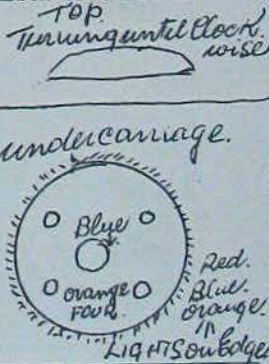 TOP.
Turning until Clock.
wise
undercarriage.
Blue
orange
FOUR.
Red.
Blue.
orange.
LIGHTS on Edge